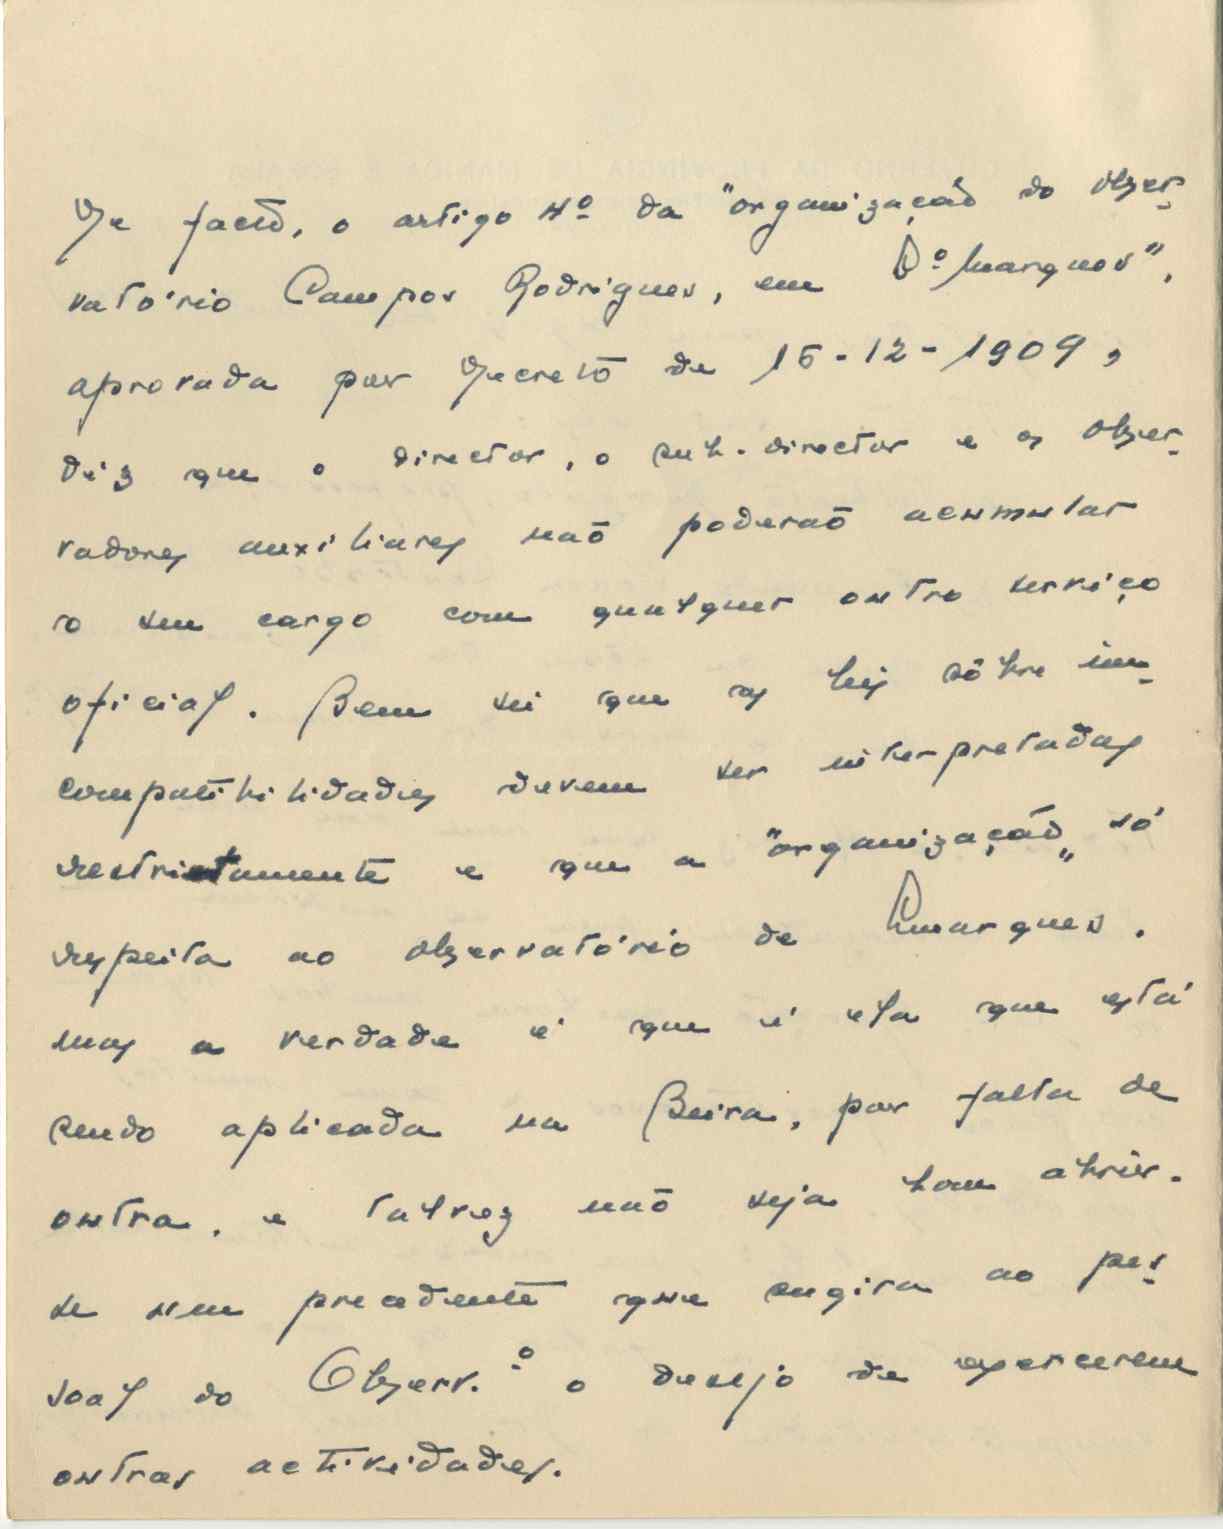 De facto, o artigo 4º da "organização do obser-
vatório Campos Rodrigues, em Lº Marques",
aprovada por decreto de 16-12-1909,
diz que o director, o sub-director e os obser-
vadores auxiliares não poderão acumular
o seu cargo com qualquer outro serviço
oficial. Bem sei que as leis sôbre in-
compatibilidades devem ser interpretadas
restrictamente e que a "organização" só
respeita ao observatório de Lmarques.
Mas a verdade é que é ela que está
sendo aplicada na Beira, por falta de
outra, e talvez não seja bom abrir-
se um precedente que sugira ao pes-
soal do Observ.º o desejo de exercerem
outras actividades.